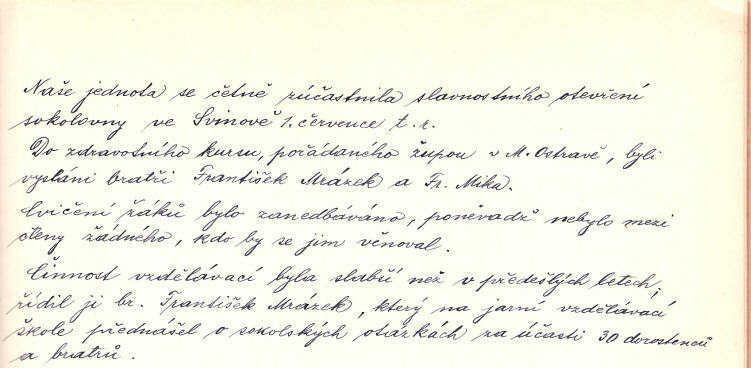 Naše jednota se četně zúčastnila slavnostního otevření
sokolovny ve Svinově 1. července t. r.
Do zdravotního kursu, pořádaného župou v M. Ostravě, byli
vysláni bratři František Mrázek a Fr. Mika.
Cvičení žáků bylo zanedbáváno, poněvadž nebylo mezi
členy žádného, kdo by se jim věnoval.
Činnost vzdělávací byla slabší než v předešlých letech;
řídil ji br. František Mrázek, který na jarní vzdělávací
škole přednášel o sokolských otázkách za účasti 30 dorostenců
a bratrů.